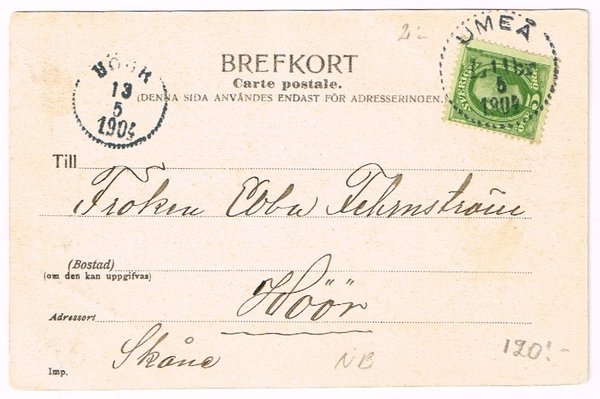 2:-
UMEÅ
5
1904
SVERIGE
BREFKORT
Carte postale.
(DENNA SIDA ANVÄNDES ENDAST FÖR ADRESSERINGEN.)
HÖÖR
13
5
1904
Till
Fröken Ebba Fehrnström
(Bostad)
(om den kan uppgifvas)
Höör
Adressort
Skåne
Imp.
NB
120:-